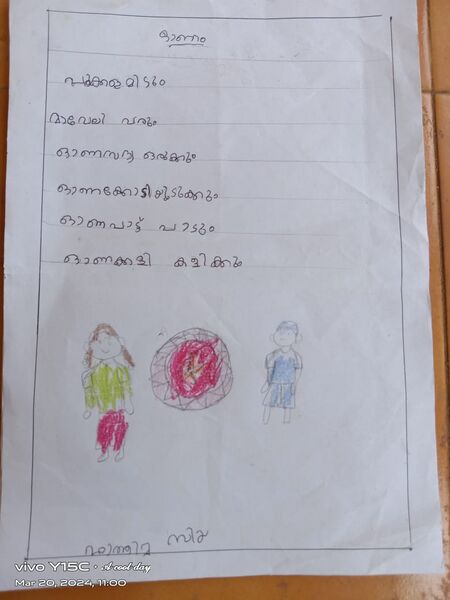 ഓണം
പൂക്കളമിടും
മാവേലി വരും
ഓണസദ്യ ഒരുക്കും
ഓണക്കോടിയുടുക്കും
ഓണപാട്ട് പാടും
ഓണക്കളി കളിക്കും
ഫാത്തിമ
vivo Y15C • A cool day
Mar 20, 2024, 11:00